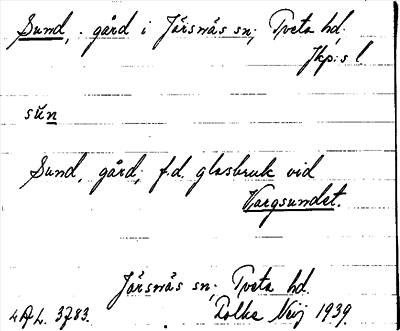 Sund, gård i Järsnäs sn; Tveta hd.
Jkp:s l.
sŭn
Sund, gård, f.d. glasbruk vid
Vargsundet.
Järsnäs sn; Tveta hd.
3783. Palle Neij 1939